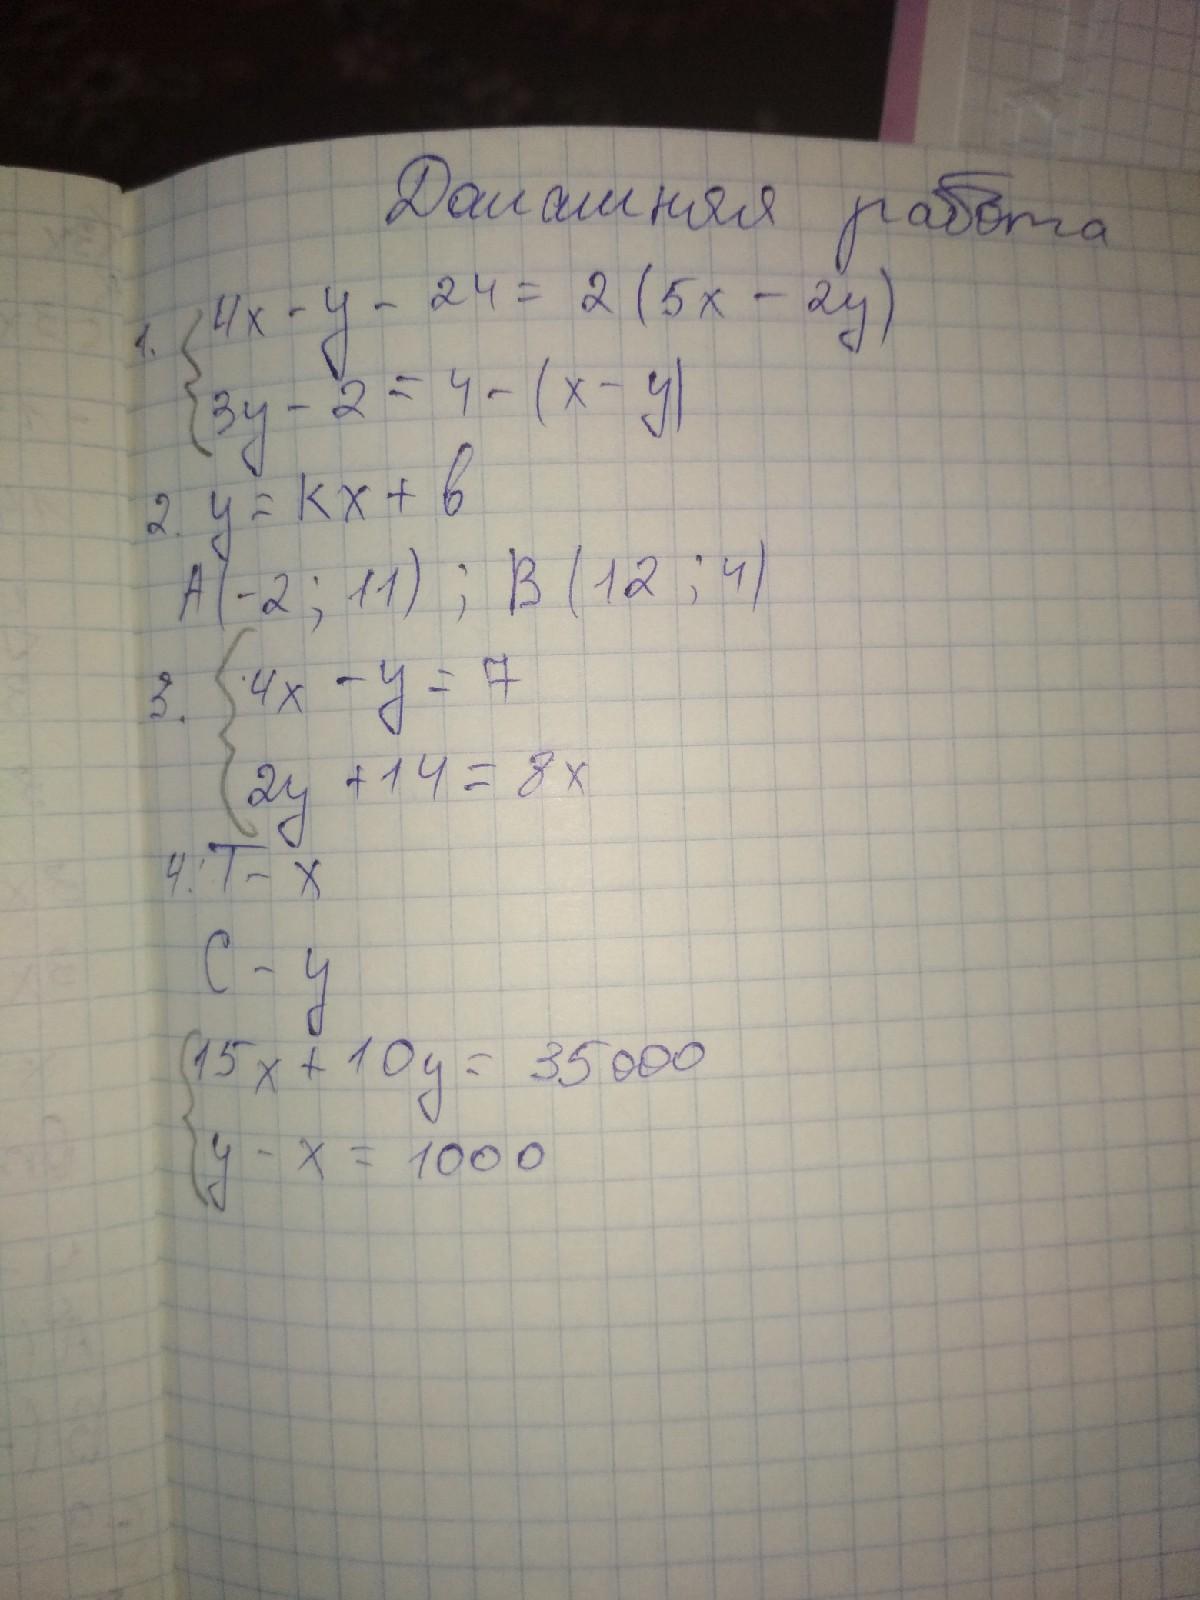 Домашняя работа
1. { 4x - y - 24 = 2 (5x - 2y)
3y - 2 = 4 - (x - y)
2. y = kx + b
A(-2; 11) ; B (12 ; 4)
3. { 4x - y = 7
2y + 14 = 8x
4. T - x
C - y
{ 15x + 10y = 35000
y - x = 1000